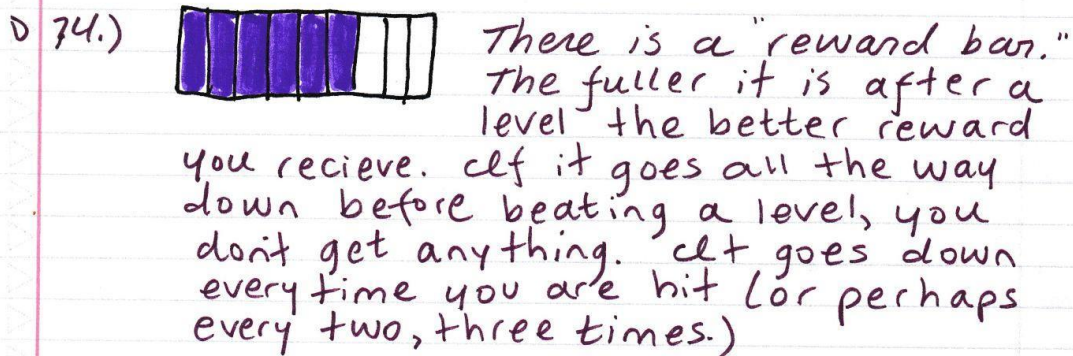 D 74.) There is a "reward bar."
The fuller it is after a
level the better reward
you recieve. If it goes all the way
down before beating a level, you
don't get anything. It goes down
every time you are hit (or perhaps
every two, three times.)